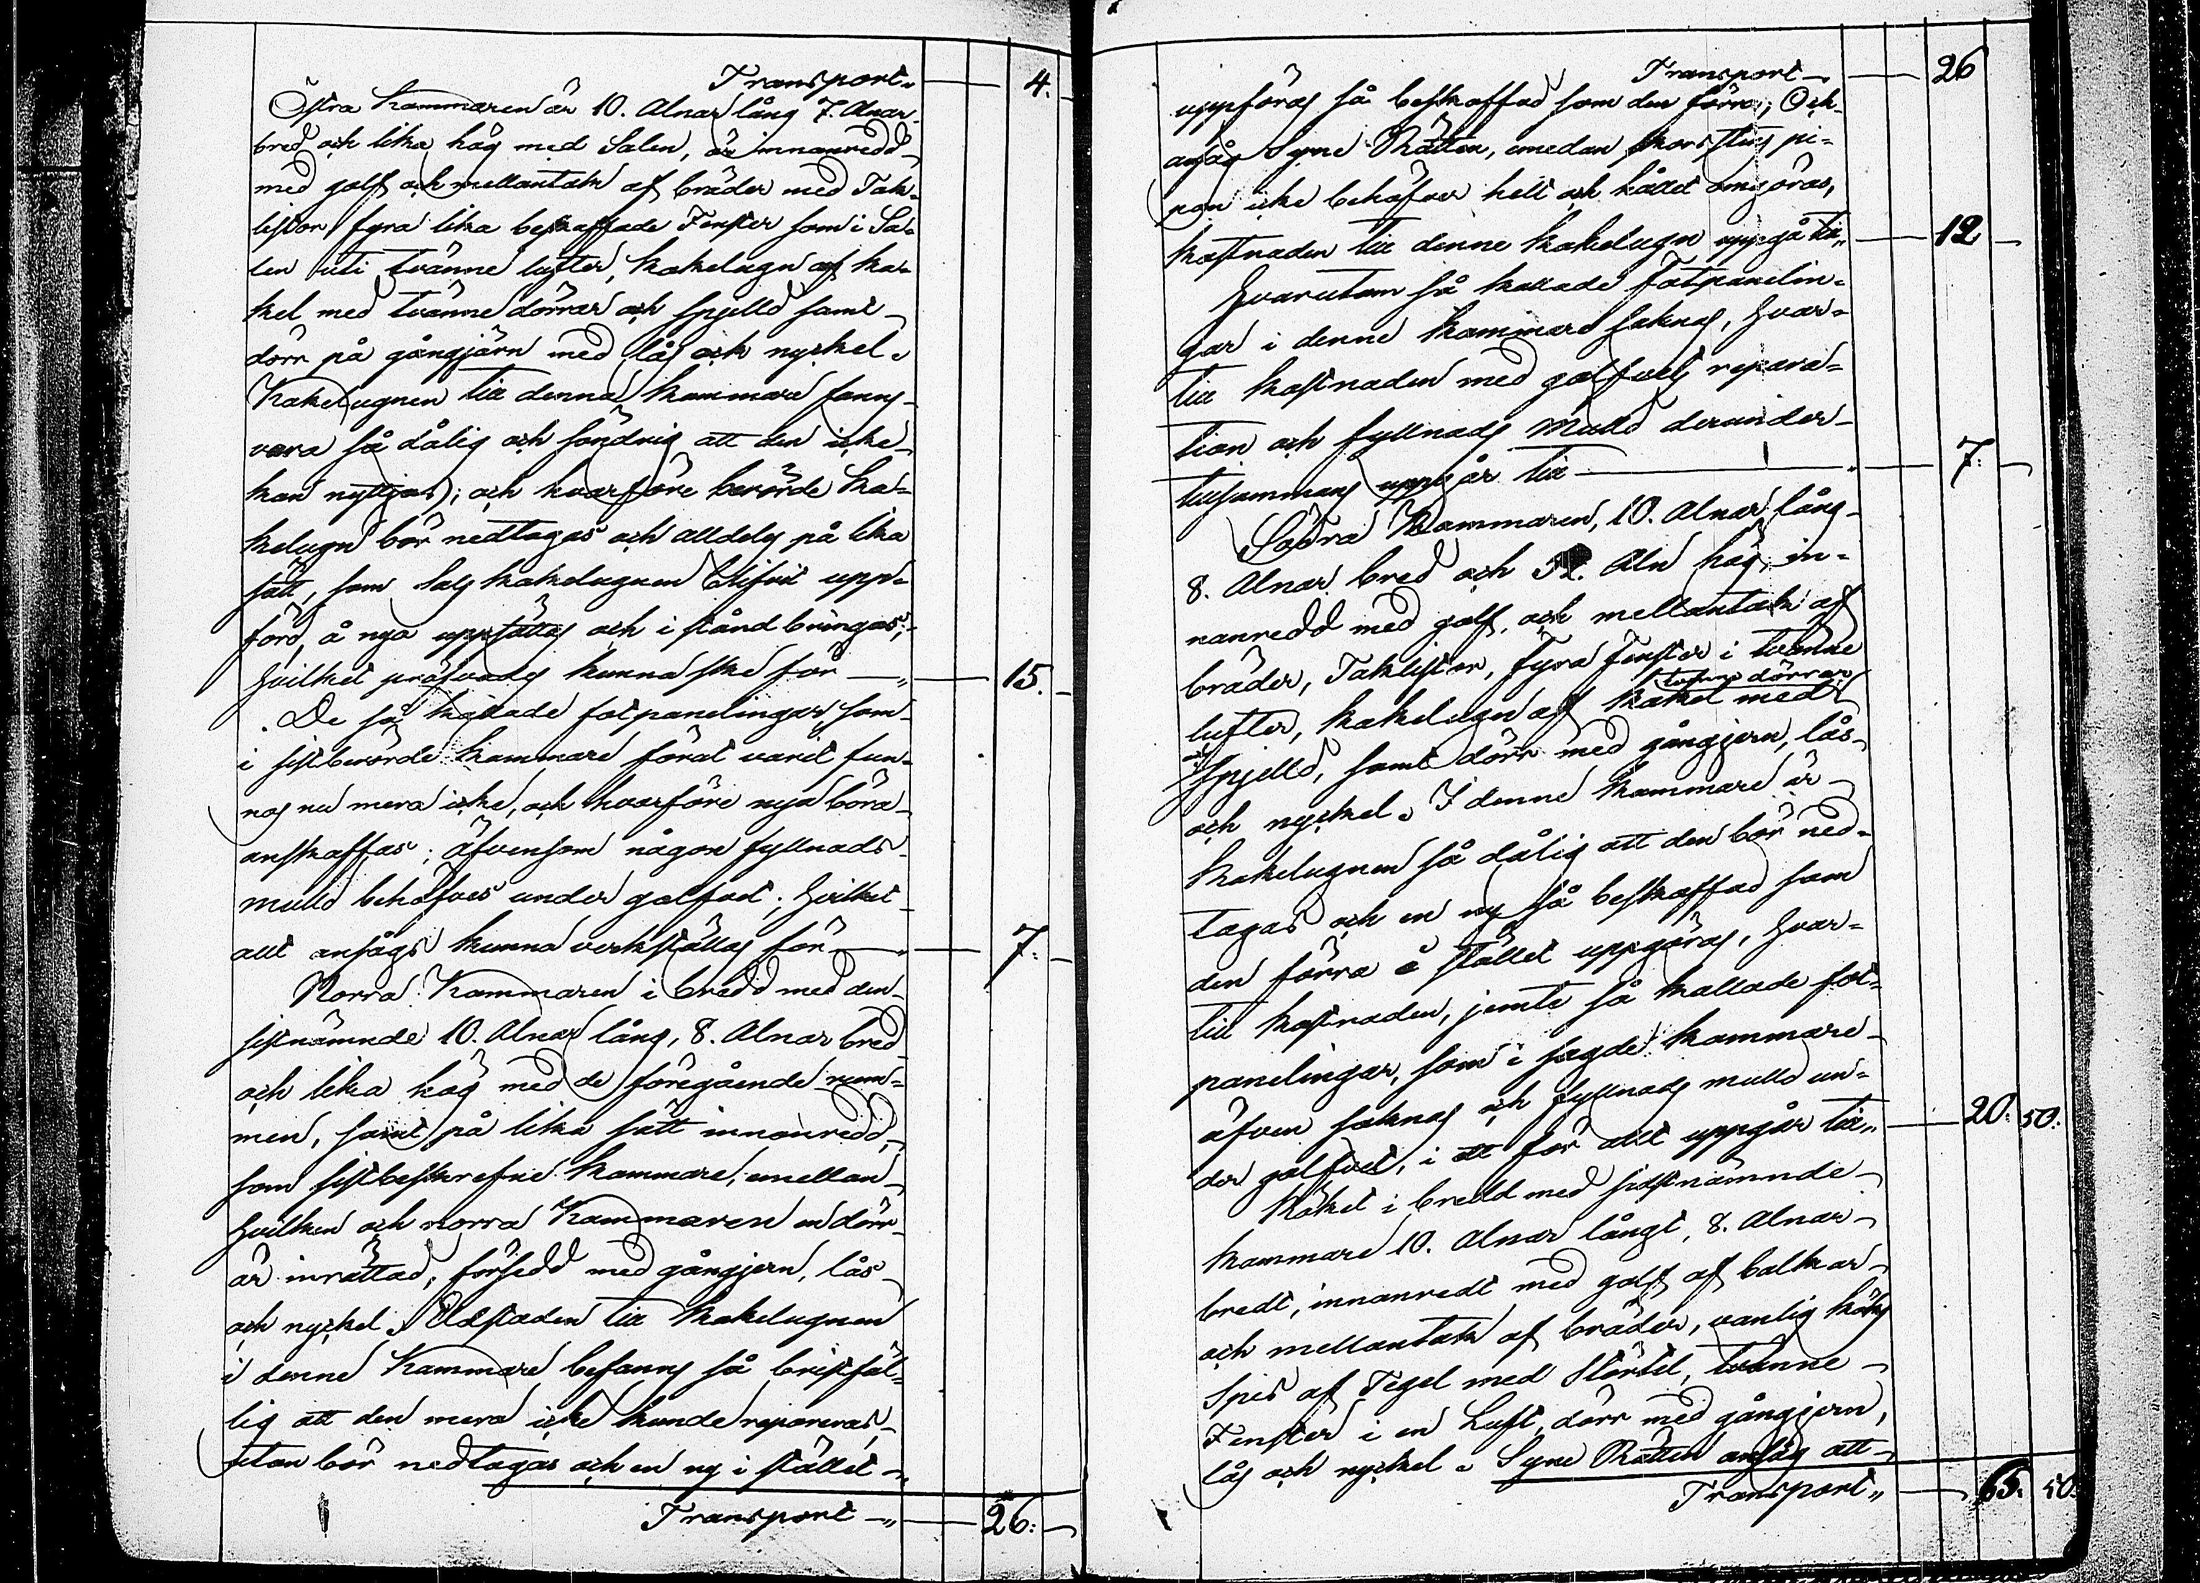 Transport. — 4. —
Östra Kammaren är 10. Alnar lång 7. Alnar
bred och lika hög med Salen, är innanredd
med golf och mellantak af bräder med Tak-
listor, fyra lika beskaffade Fenster som i Sa-
len uti tvänne lufter, Kakelugn af ka-
kel med tvänne dörrar och spjelld samt
dörr på gångjärn med lås och nyckel.
Kakelugnen till denna Kammare fanns
vara så dålig och söndrig att den icke
kan nyttjas; och hvarföre berörde Ka-
kelugn bör nedtagas och alldeles på lika
sätt, som Sals kakelugnen blifvit upp-
förd, å nya uppsättas och i stånd bringas;
hvilket pröfvades kunna ske för — 15. —
De så kallade fotpanelingar, som
i sistberörde kammare förut varit fin-
nas nu mera icke, och hvarföre nya böra
anskaffas; äfvensom någon fyllnads-
mull behöfves under golfvet; hvilket
allt ansågs kunna verkställas för — 7. —
Norra Kammaren i bredd med den
sistnämnde 10. Alnar lång, 8. Alnar bred
och lika hög med de föregående rum-
men, samt på lika sätt innanredd,
som sistbeskrefne kammare; emellan
hvilken och norra Kammaren en dörr
är inrättad, försedd med gångjern, lås
och nyckel. Eldstaden till Kakelugnen
i denne Kammare befanns så bristfäl-
lig att den mera icke kunde repareras,
utan bör nedtagas och en ny i stället
Transport — 26. —
Transport — 26
uppföras så beskaffad som den förra; Och
ansåg Syne Rätten, emedan skorstens pi-
pan icke behöfver helt och hållet omgöras,
kostnaden till denne kakelugn uppgå till — 12 —
Hvarutom så kallade fotpanelin-
gar i denne kammare saknas, hvar-
till kostnaden med golfvets repara-
tion och fyllnads mull derunder
tillsammans uppgår till — 7. —
Södra Kammaren, 10. Alnar lång
8. Alnar bred och Aln hög, in-
nanredd med golf och mellantak af
bräder, Taklister, fyra Fenster i tvänne
lufter, kakelugn af kakel med tvänne dörrar
och Spjelld, samt dörr med gångjern, lås
och nyckel. I denne kammare är
kakelugnen så dålig att den bör ned-
tagas och en ny så beskaffad som
den förra i stället uppgöras, hvar-
till kostnaden, jemte så kallade fot-
panelingar, som i sagde kammare
äfven saknas och fyllnads mull un-
der golfvet, i ett för allt uppgår till — 20. 50.
Köket i bredd med sidstnämnde
kammare 10. Alnar långt, 8. Alnar
bredt, innanredt med golf af balkar
och mellantak af bräder, vanlig köks
Spis af Tegel med Störtel, tvänne
Fenster i en Luft, dörr med gångjern,
lås och nyckel. Syne Rätten ansåg att
Transport — 65. 50.